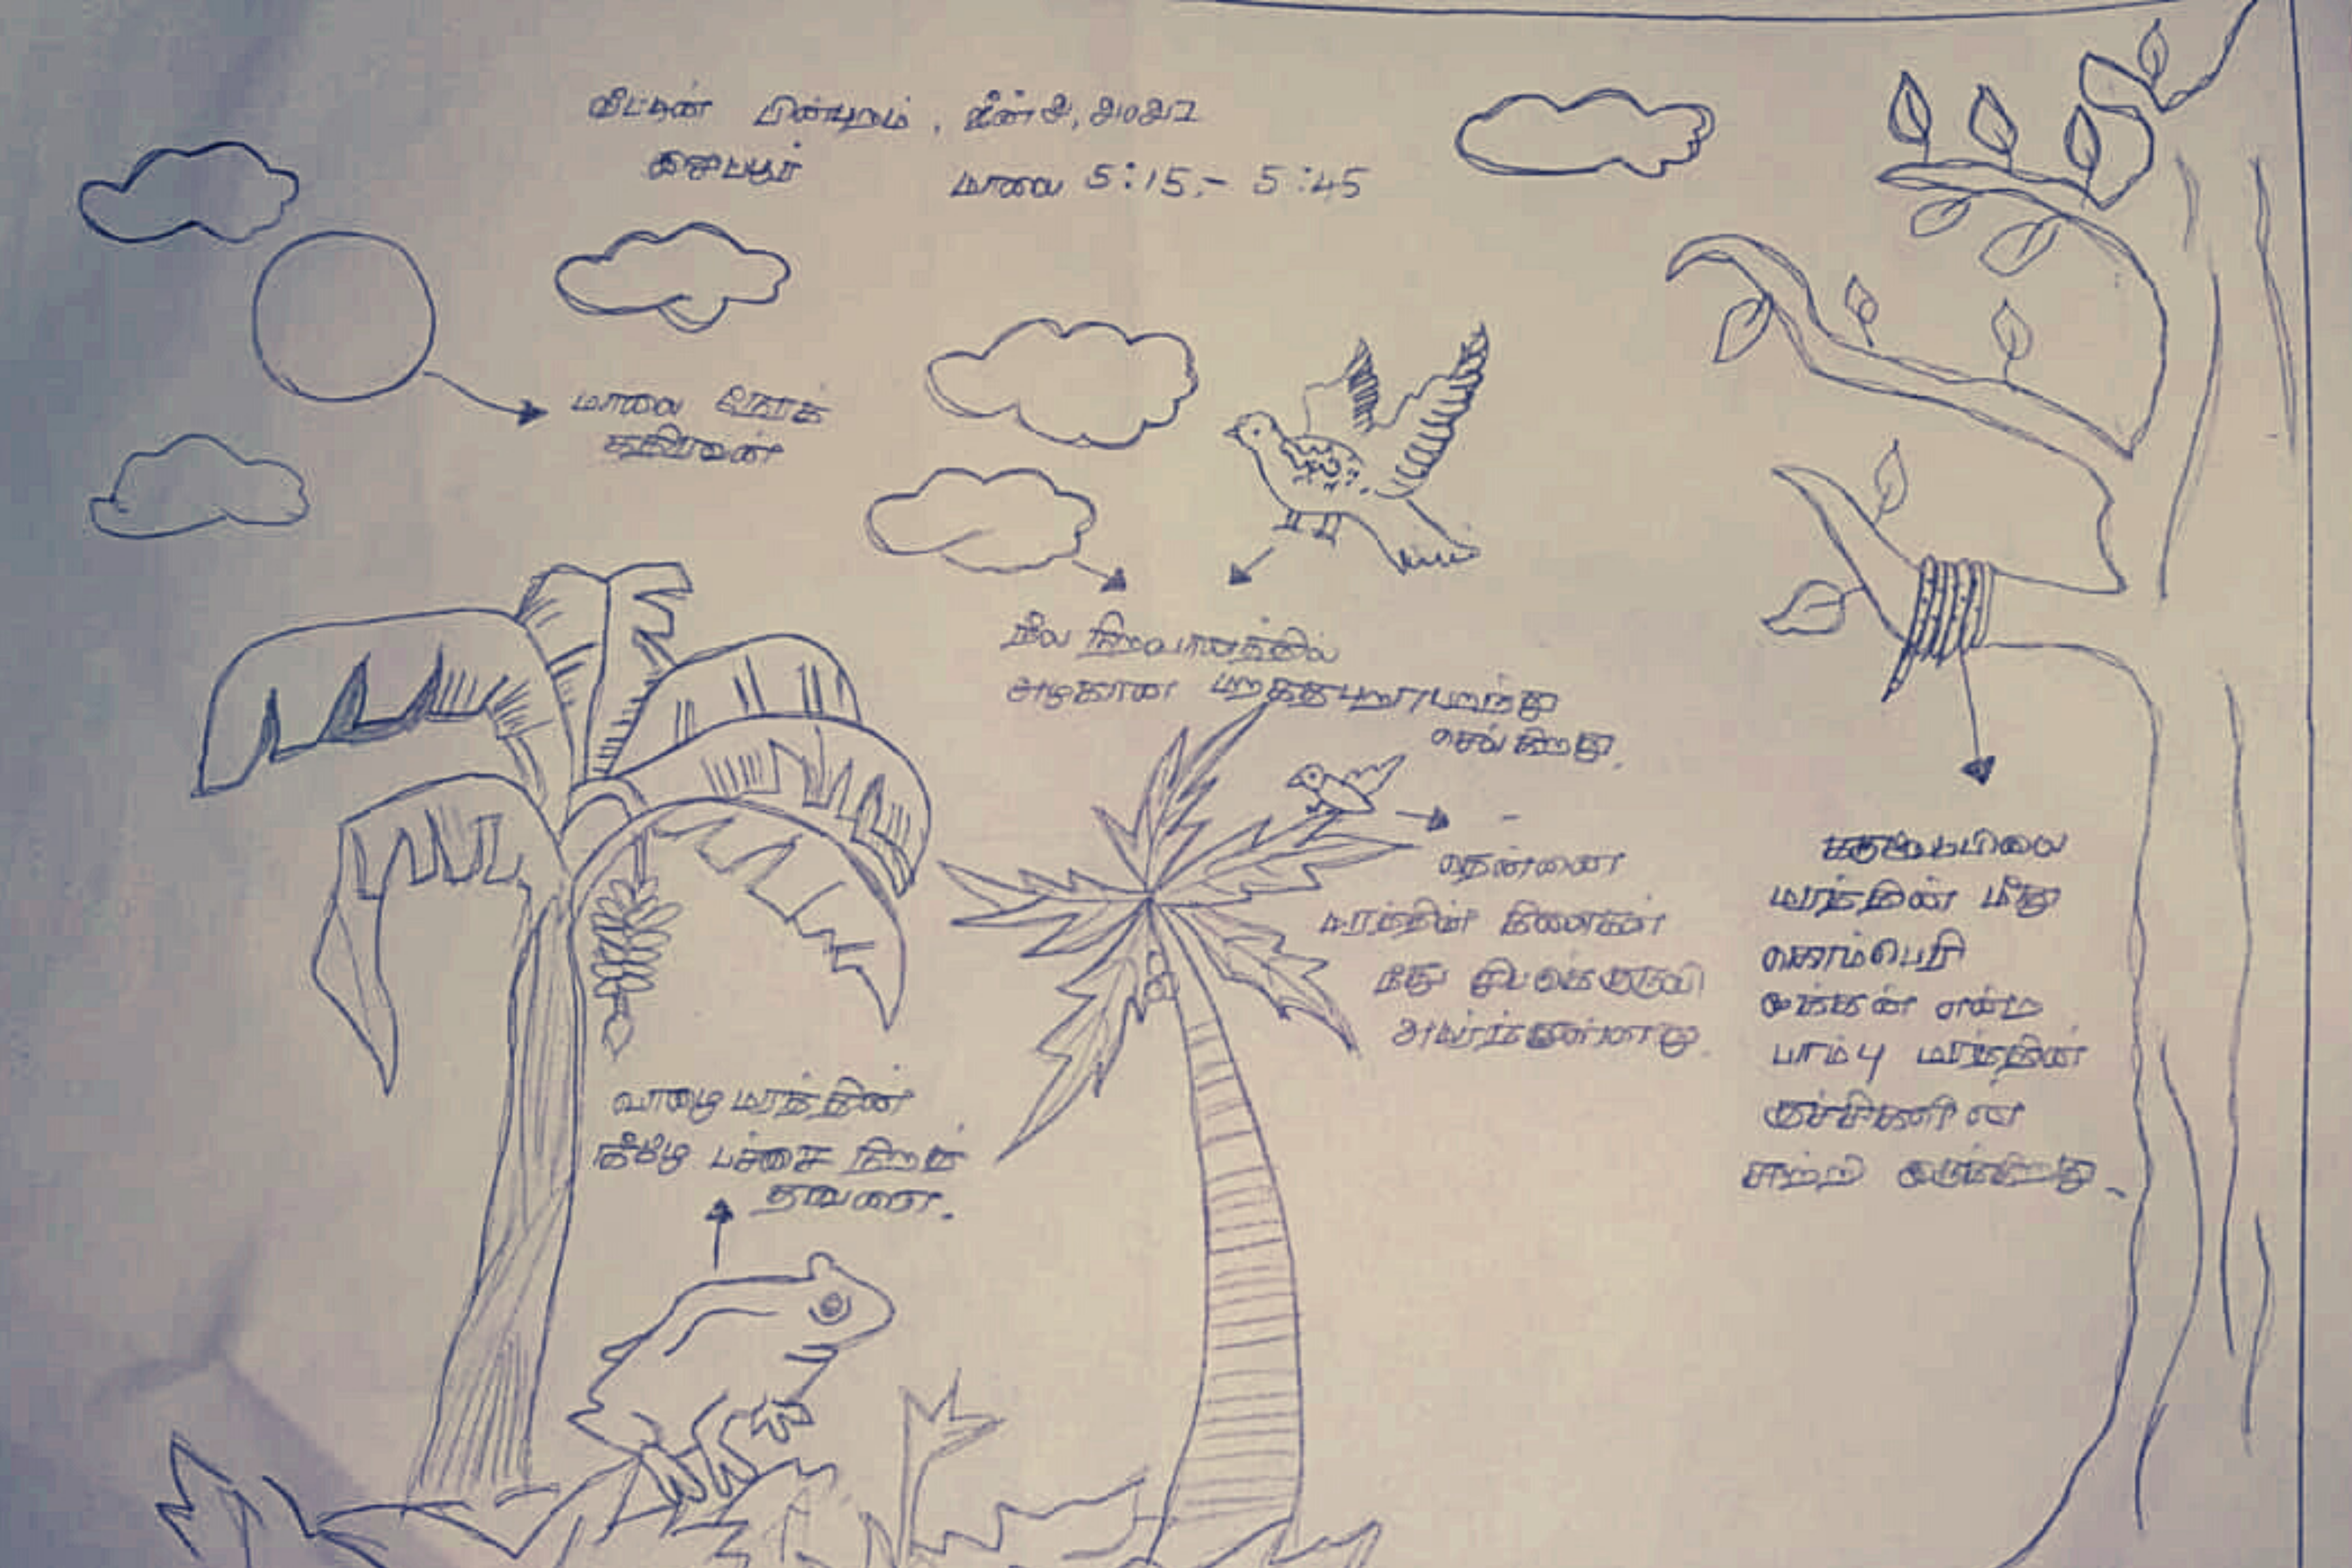 வீட்டின் பின்புறம், ஜீன் 2, 2022
மாலை 5:15 - 5:45
மாலை நேரக்
கதிரவன்
நீல நிறவானத்தில்
அழகான மறக்கபுறா பறந்து
செல்கிறது.
தென்னை
மரத்தின் கிளைகள்
மீது சிட்டுக்குருவி
அமர்ந்துள்ளது.
கருவேப்பிலை
மரத்தின் மீது
கொம்பேறி
மூக்கன் என்ற
பாம்பு மரத்தின்
குச்சிகளில்
சுற்றி இருக்கிறது.
வாழை மரத்தின்
கீழே பச்சை நிறத்
தவளை.